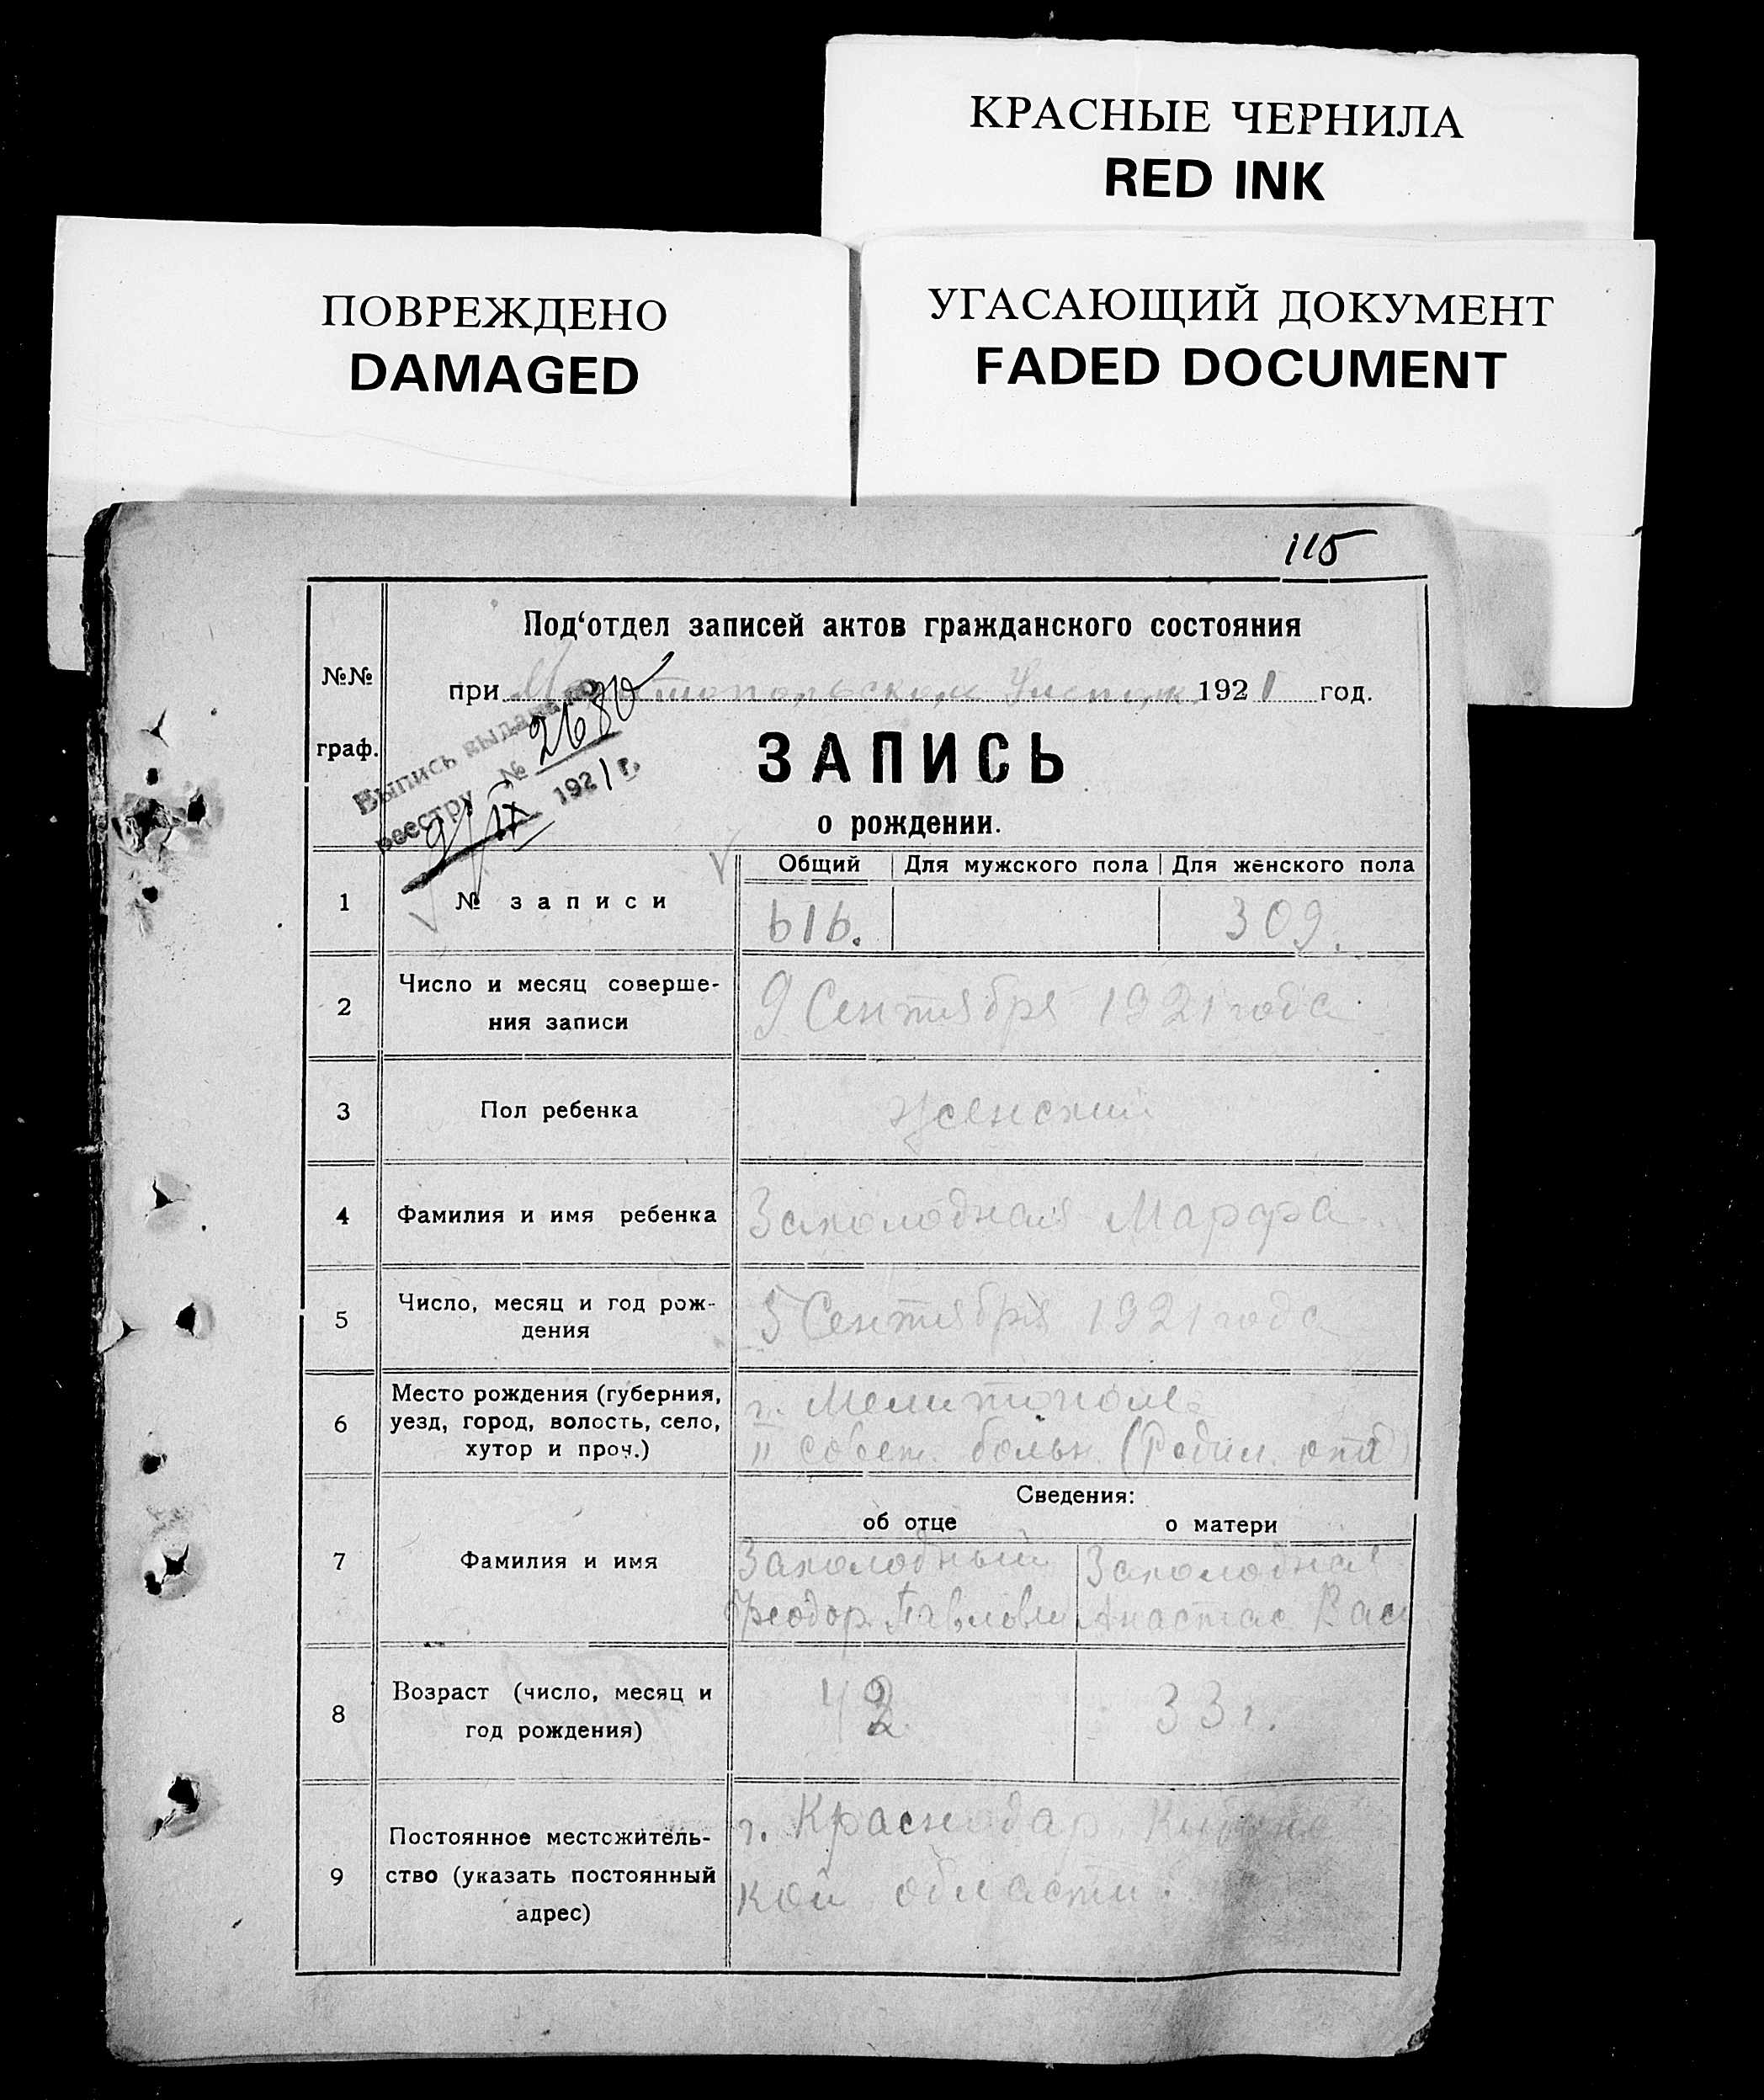 КРАСНЫЕ ЧЕРНИЛА
RED INK
ПОВРЕЖДЕНО
DAMAGED
УГАСАЮЩИЙ ДОКУМЕНТ
FADED DOCUMENT
115
№№
граф.
Под‘отдел записей актов гражданского состояния
при 1921 год.
Выпись выдана по
реестру № 2680
9/IX 1921 г.
ЗАПИСЬ
о рождении.
Общий Для мужского пола Для женского пола
1 № записи 616. 309.
2 Число и месяц соверше-
ния записи
9 Сентября 1921 года
3 Пол ребенка Женский
4 Фамилия и имя ребенка Захолодная Марфа
5 Число, месяц и год рож-
дения
5 Сентября 1921 года
6 Место рождения (губерния,
уезд, город, волость, село,
хутор и проч.)
г. Мелитополь
II совет. больн. (Родил. отд)
Сведения:
об отце о матери
7 Фамилия и имя
Захолодный Захолодная
Феодор Павлов Анастас Вас
8 Возраст (число, месяц и
год рождения)
42 33 г.
9 Постоянное местожитель-
ство (указать постоянный
адрес)
г. Краснодар Кубанс
кой области.